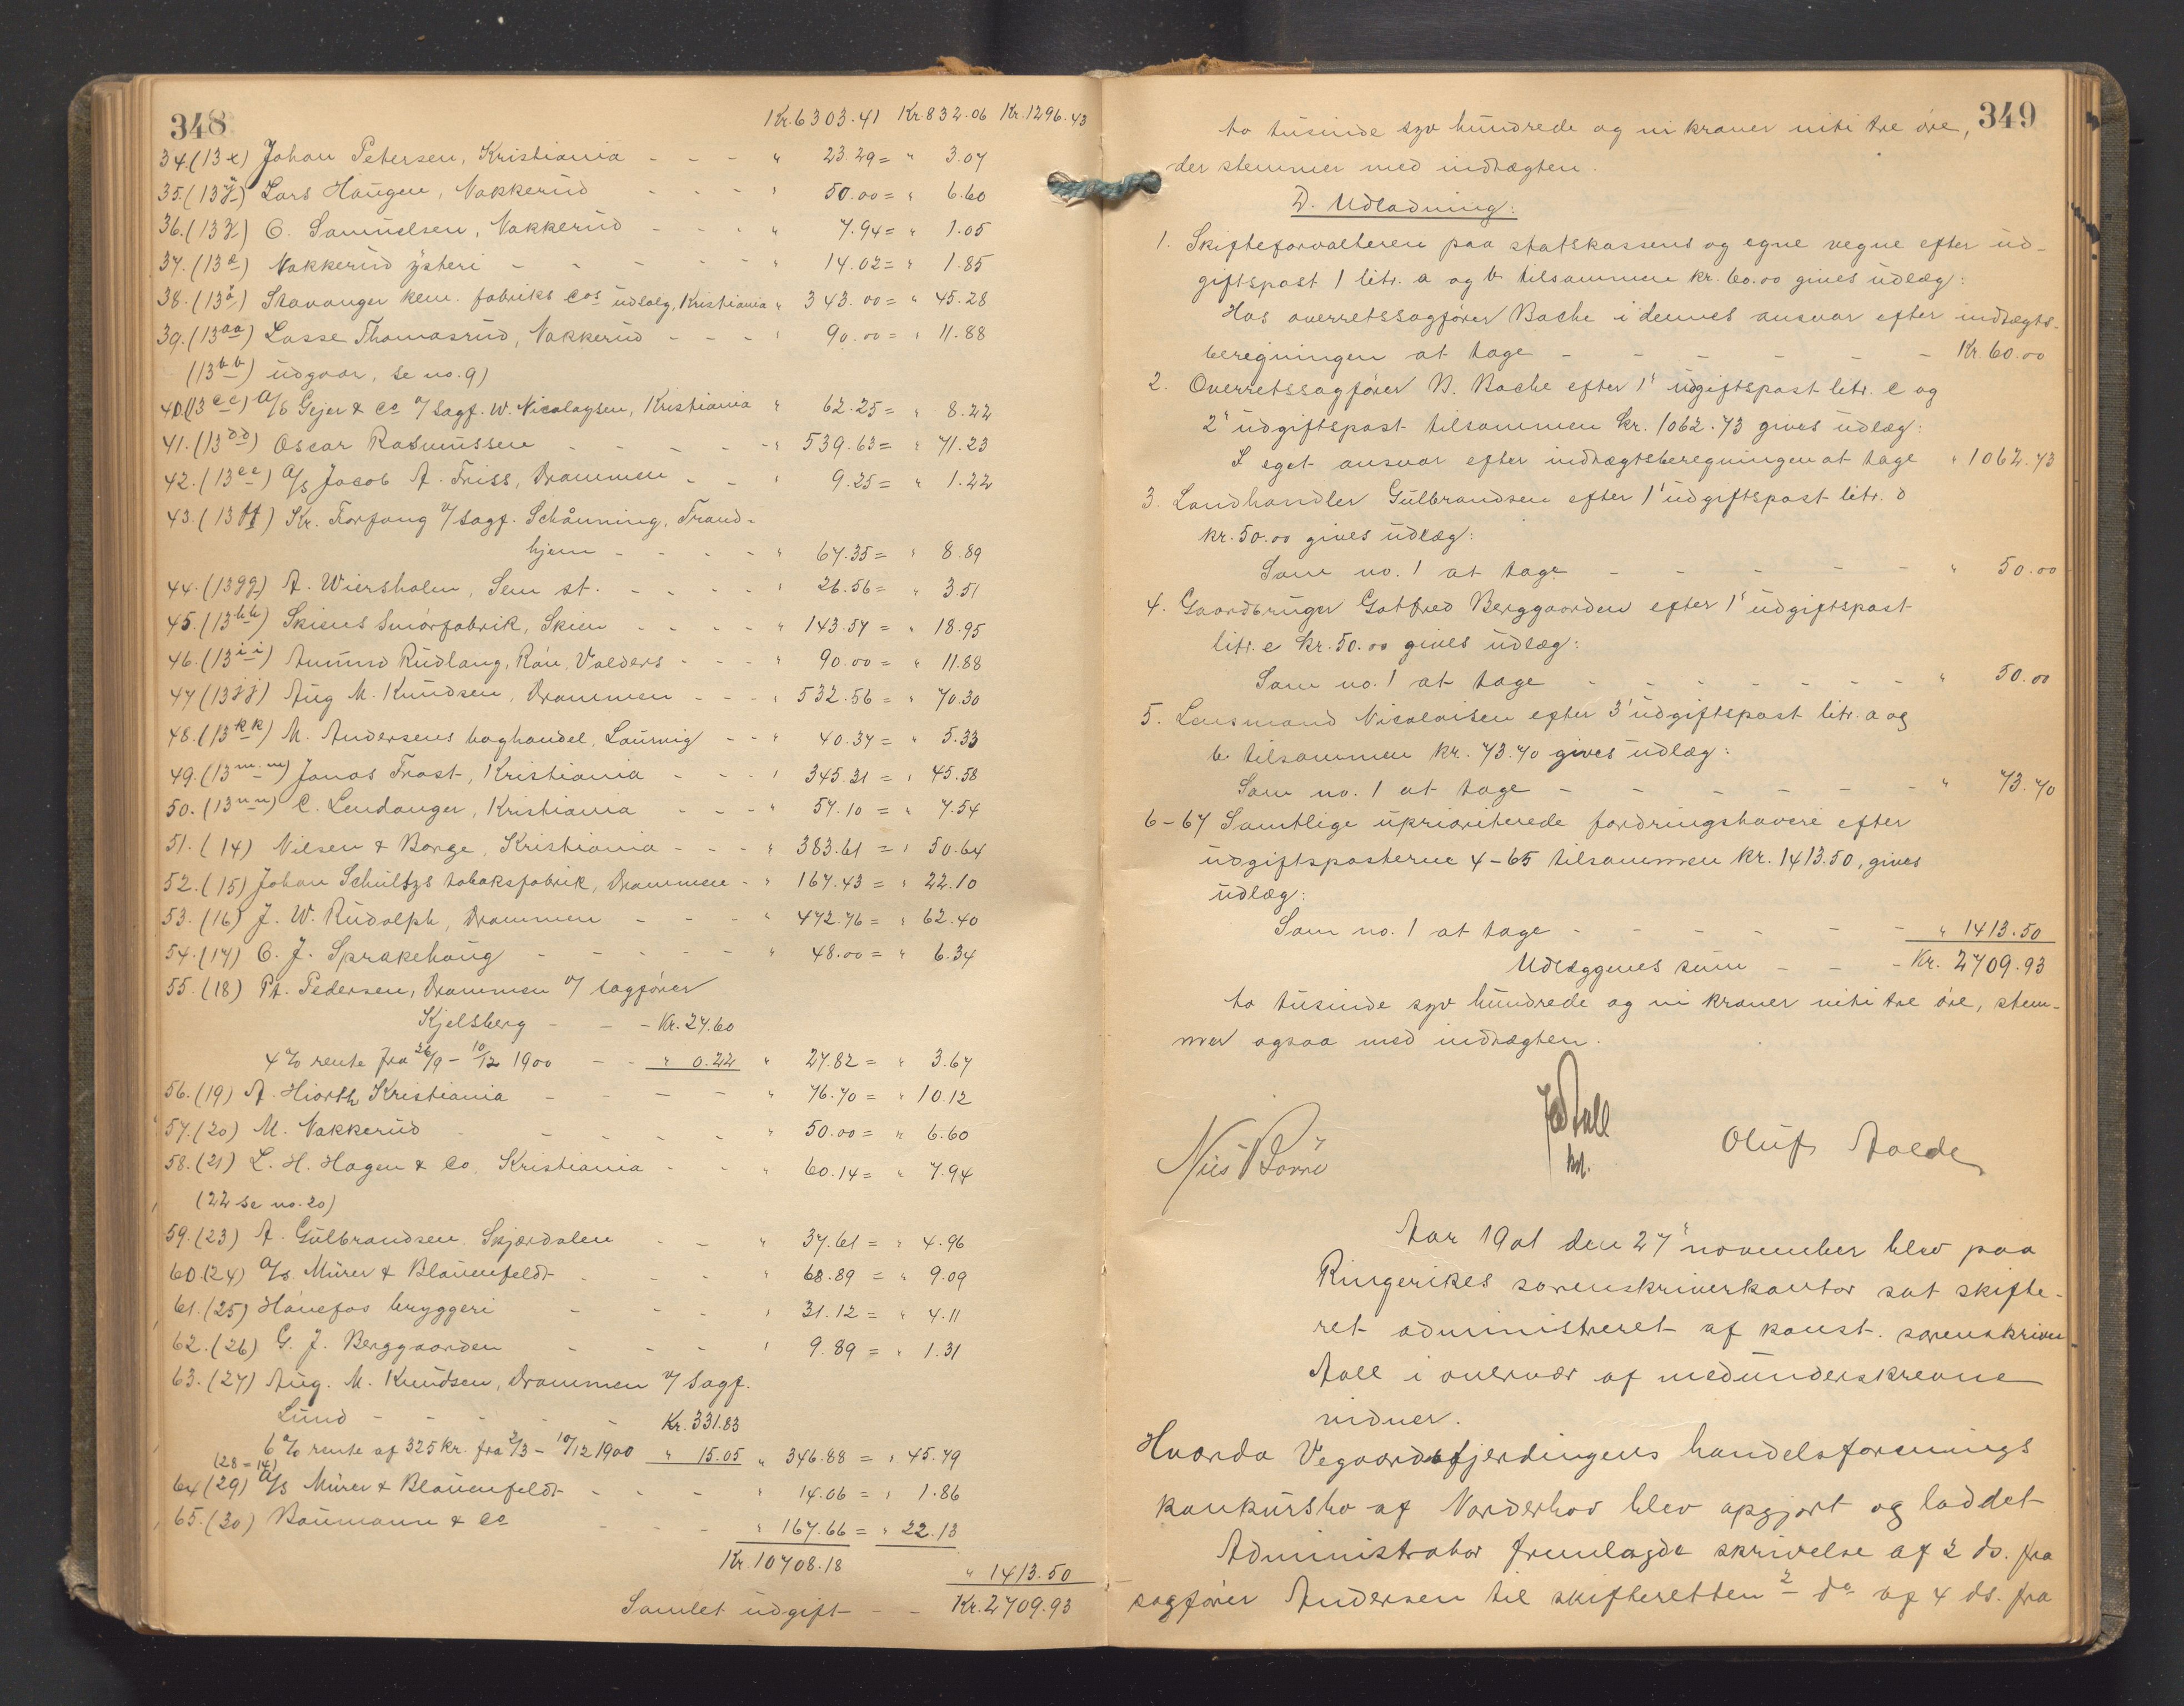 348
Kr. 6303.41 Kr. 832.06 Kr. 1296.43
34. (13x) Johan Petersen, Kristiania - - - " 23.29 = " 3.07
35. (13y) Lars Haugen, Nakkerud - - - " 50.00 = " 6.60
36. (13z) O. Samuelsen, Nakkerud - - - " 7.94 = " 1.05
37. (13æ) Nakkerud ysteri - - - - - " 14.02 = " 1.85
38. (13ø) Stavanger kem. fabriks Cos udsalg, Kristiania " 343.00 = " 45.28
39. (13aa) Lasse Thomasrud, Nakkerud - - - " 90.00 = " 11.88
(13bb) udgaar, se no. 9)
40. (13cc) A/S Gejer & Co v/ sagf. W. Nicolaysen, Kristiania " 62.25 = " 8.22
41. (13dd) Oscar Rasmussen - - - - - " 539.63 = " 71.23
42. (13ee) A/s Jacob A. Friss, Drammen - - " 9.25 = " 1.22
43. (13ff) Kr. Torfang v/ sagf. Schånning, Trond-
hjem - - - - " 67.35 = " 8.89
44. (13gg) A. Wiersholm, Sem st. - - - - " 26.56 = " 3.51
45. (13hh) Skiens Smørfabrik, Skien - - - - " 143.57 = " 18.95
46. (13ii) Amund Rudlang, Røn, Valders - - - " 90.00 = " 11.88
47. (13jj) Aug M. Knudsen, Drammen - - - " 532.56 = " 70.30
48. (13kk) M. Andersens boghandel, Laurvig - - " 40.37 = " 5.33
49. (13mm) Jonas Trost, Kristiania - - - " 345.31 = " 45.58
50. (13nn) C. Lendanger, Kristiania - - - " 57.10 = " 7.54
51. (14) Nilsen & Borge, Kristiania - - - " 383.61 = " 50.64
52. (15) Johan Schultzs tobaksfabrik, Drammen - " 167.43 = " 22.10
53. (16) J. W. Rudolph, Drammen - - - " 472.76 = " 62.40
54. (17) O. J. Sprakehaug - - - - - " 48.00 = " 6.34
55. (18) Pt. Pedersen, Drammen v/ sagfører
Kjelsberg - - - Kr. 27.60
4% rente fra 26/9 - 10/12 1900 - - " 0.22 " 27.82 = " 3.67
56. (19) A. Hiorth, Kristiania - - - - " 76.70 = " 10.12
57. (20) M. Nakkerud - - - - - " 50.00 = " 6.60
58. (21) L. H. Hagen & Co, Kristiania - - " 60.14 = " 7.94
(22 se no. 20)
59. (23) A. Gulbrandsen, Skjærdalen - - " 37.61 = " 4.96
60. (24) A/s. Mürer & Blauenfeldt - - - - " 68.89 = " 9.09
61. (25) Hønefos bryggeri - - - " 31.12 = " 4.11
62. (26) G. J. Berggaarden - - - - " 9.89 = " 1.31
63. (27) Aug. M. Knudsen, Drammen v/ sagf.
Lund - - - - - Kr. 331.83
6% rente af 325 kr. fra 2/3 - 10/12 1900 " 15.05 " 346.88 = " 45.79
(28 = 14)
64 (29) A/s Mürer & Blauenfeldt - - - - " 14.06 = " 1.86
65. (30) Baumann & Co - - - " 167.66 = " 22.13
Kr. 10708.18 " 1413.50
Samlet udgift - - Kr. 2709.93
349
to tusinde syv hundrede og ni kroner niti tre øre,
der stemmer med indtægten.
D. Udlodning:
1. Skifteforvalteren paa statskassens og egne vegne efter ud-
giftspost 1 litr. a og b tilsammen kr. 60.00 gives udlæg:
Hos overretssagfører Bache i dennes ansvar efter indtægts-
beregningen at tage - - - - - - Kr. 60.00
2. Overretssagfører N. Bache efter 1' udgiftspost litr. c og
2' udgiftspost tilsammen kr. 1062.73 gives udlæg:
I eget ansvar efter indtægtsberegningen at tage " 1062.73
3. Landhandler Gulbrandsen efter 1' udgiftspost litr. d
kr. 50.00 gives udlæg:
Som no. 1 at tage - - - - - - " 50.00
4. Gaardbruger Gotfred Berggaarden efter 1' udgiftspost
litr. e kr. 50.00 gives udlæg:
Som no. 1 at tage - - - - - - - " 50.00
5. Lensmand Nicolaisen efter 3' udgiftspost litr. a og
b tilsammen kr. 73.70 gives udlæg:
Som no. 1 at tage - - - - - - " 73.70
6-67 Samtlige uprioriterede fordringshavere efter
udgiftsposterne 4-65 tilsammen kr. 1413.50, gives
udlæg:
Som no. 1 at tage - - - - - - " 1413.50
Udlæggenes sum - - - Kr. 2709.93
to tusinde syv hundrede og ni kroner niti tre øre, stem-
mer ogsaa med indtægten.
Aall
kst.
Oluf Aalde
Aar 1901 den 27' november blev paa
Ringerikes sorenskriverkontor sat skifte-
ret administreret af konst. sorenskriver
Aall i overvær af medunderskrevne
vidner.
Hvorda Vegaardsfjerdingens handelsforenings
konkursbo af Norderhov blev opgjort og loddet
Administrator fremlagde skrivelse af 2 ds. fra
sagfører Andersen til skifteretten 2 do af 4 ds. fra